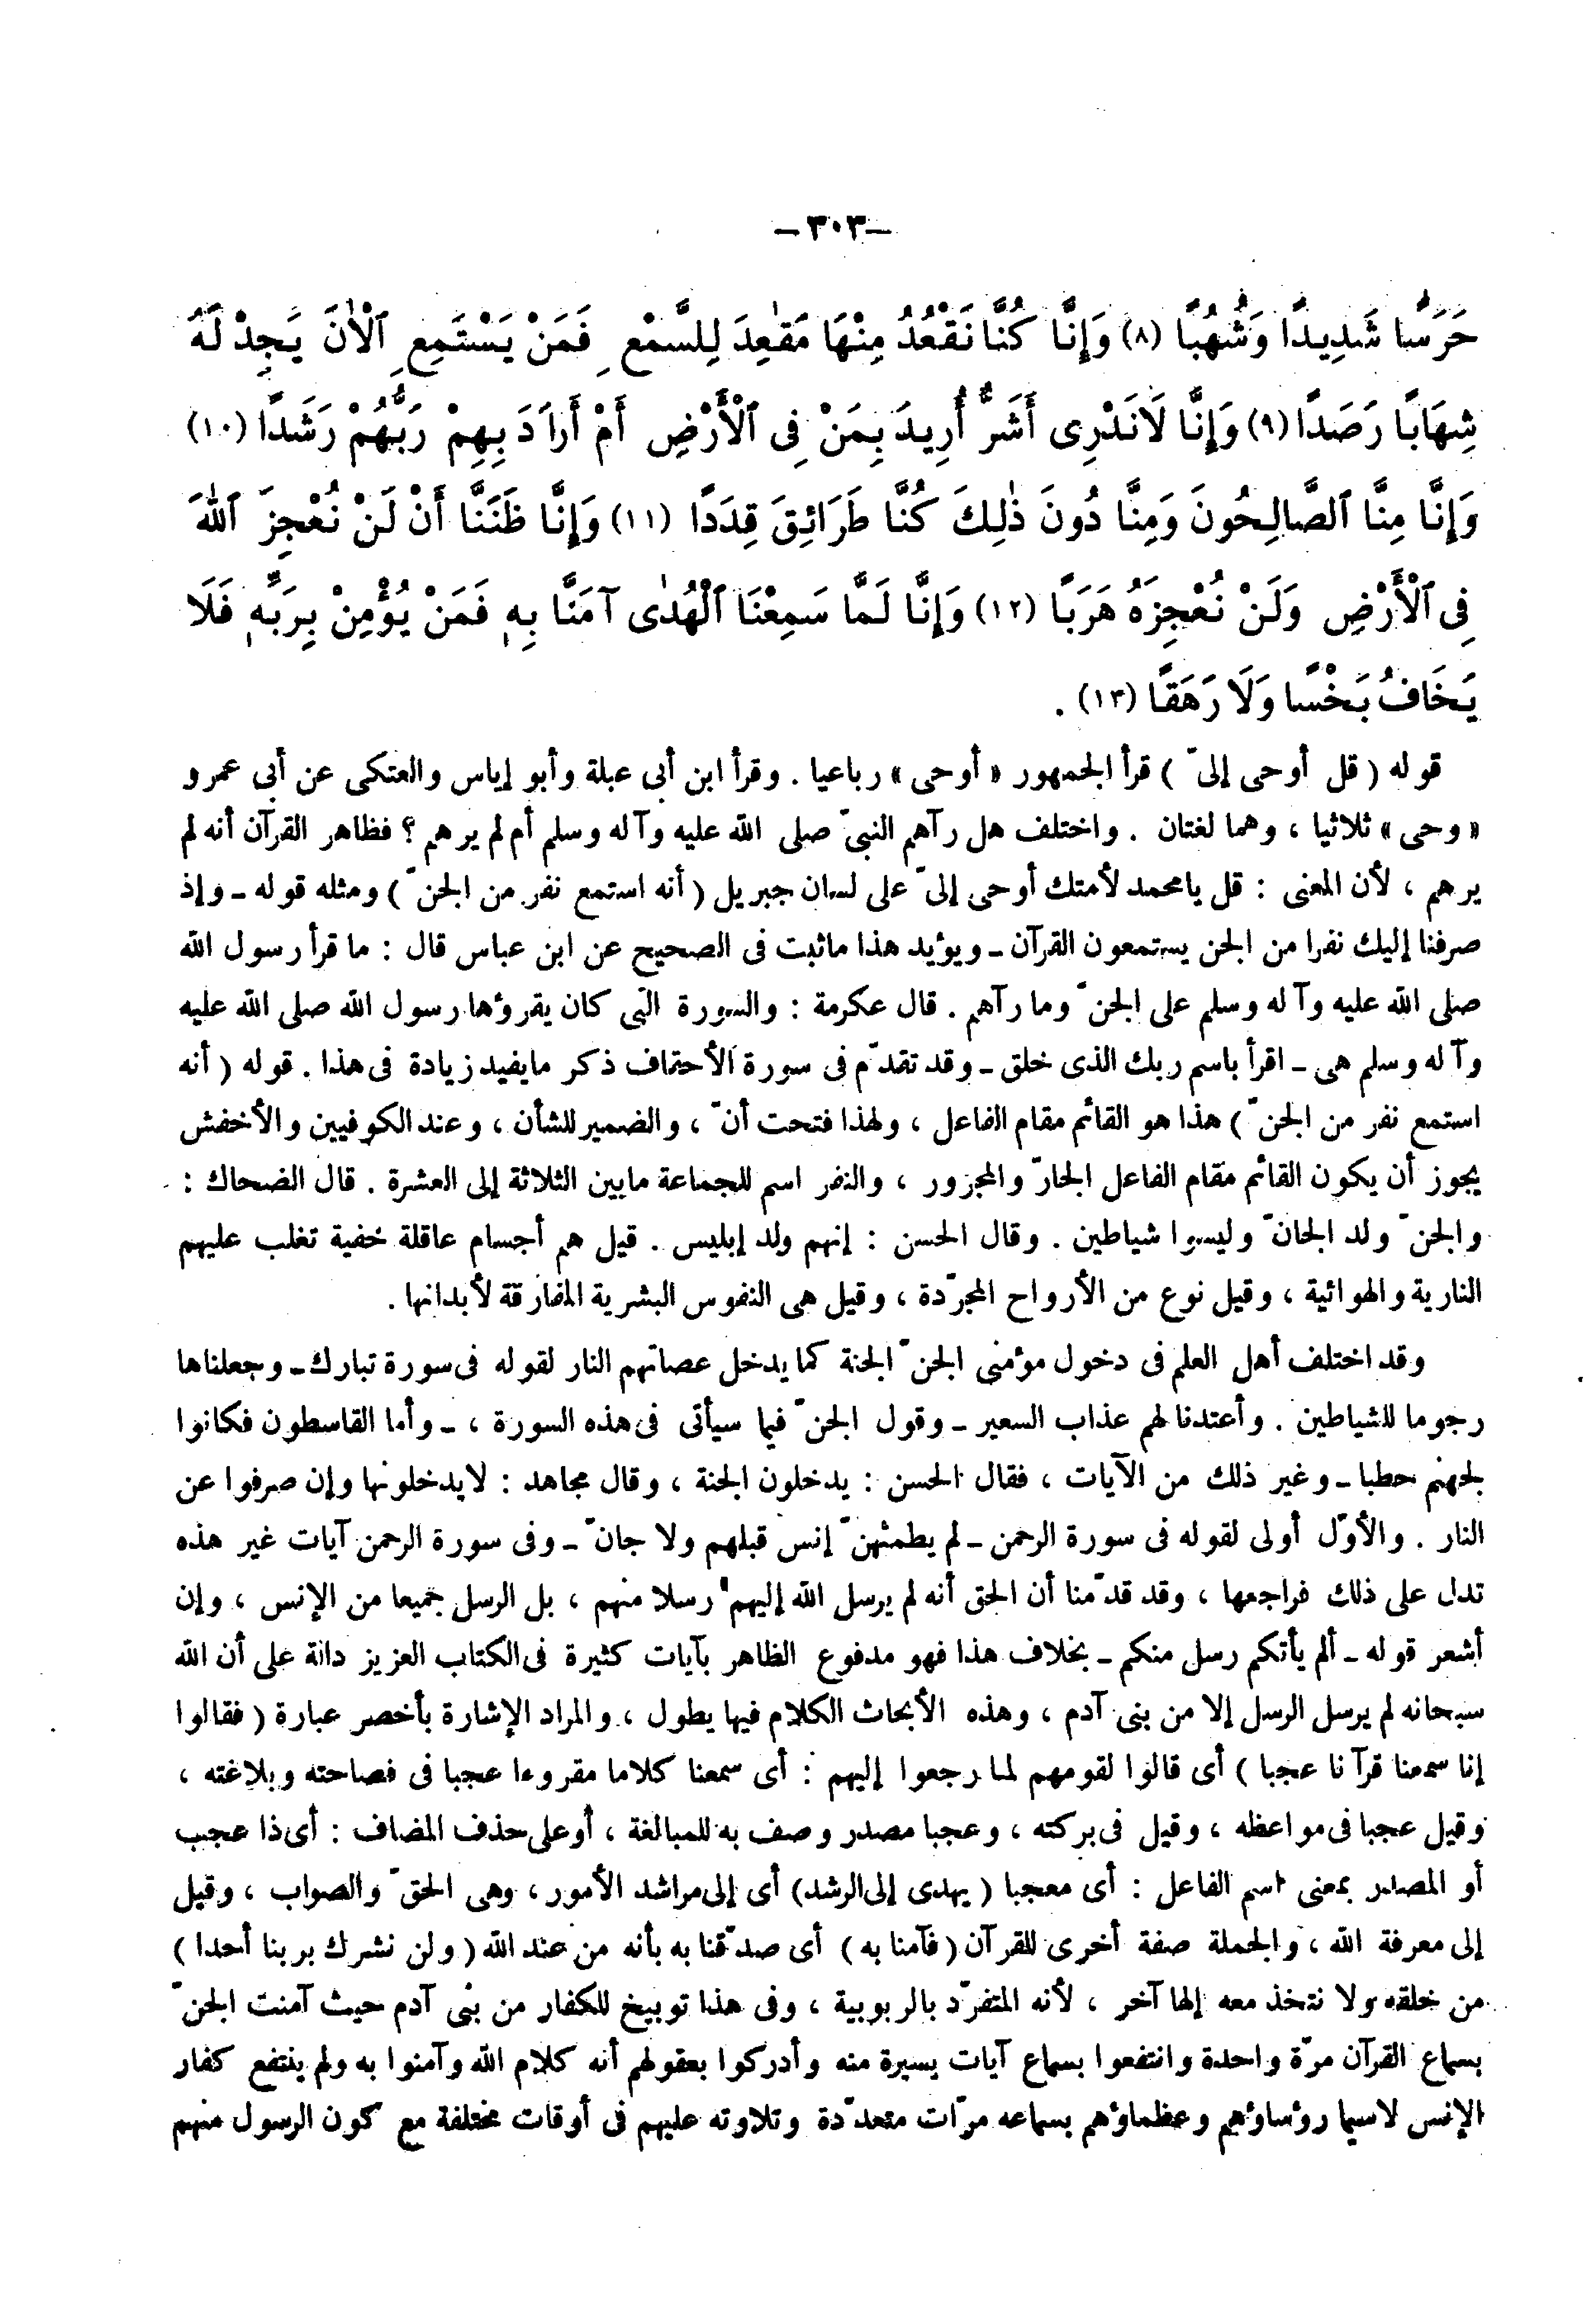 -٣٠٣-
حَرَسًا شَدِيدًا وَشُهُبًا (٨) وَإِنَّا كُنَّا نَقْعُدُ مِنْهَا مَقَٰعِدَ لِلسَّمْعِ فَمَنْ يَسْتَمِعِ ٱلْآنَ يَجِدْ لَهُ
شِهَابًا رَصَدًا (٩) وَإِنَّا لَانَدْرِى أَشَرٌّ أُرِيدَ بِمَنْ فِى ٱلْأَرْضِ أَمْ أَرَادَ بِهِمْ رَبُّهُمْ رَشَدًا (١٠)
وَإِنَّا مِنَّا ٱلصَّالِحُونَ وَمِنَّا دُونَ ذَٰلِكَ كُنَّا طَرَائِقَ قِدَدًا (١١) وَإِنَّا ظَنَنَّا أَنْ لَنْ نُعْجِزَ ٱللهَ
فِى ٱلْأَرْضِ وَلَنْ نُعْجِزَهُ هَرَبًا (١٢) وَإِنَّا لَمَّا سَمِعْنَا ٱلْهُدَىٰ آمَنَّا بِهِ فَمَنْ يُؤْمِنْ بِرَبِّهِ فَلَا
يَخَافُ بَخْسًا وَلَا رَهَقًا (١٣) .
قوله ( قل أوحى إلىّ ) قرأ الجمهور « أوحى » رباعيا . وقرأ ابن أبى عبلة وأبو إياس والعتكى عن أبى عمرو
« وحى » ثلاثيا ، وهما لغتان . واختلف هل رآهم النبىّ صلى الله عليه وآله وسلم أم لم يرهم ؟ فظاهر القرآن أنه لم
يرهم ، لأن المعنى : قل يامحمد لأمتك أوحى إلىّ على لسان جبريل ( أنه استمع نفر من الجنّ ) ومثله قوله - وإذ
صرفنا إليك نفرا من الجن يستمعون القرآن - ويؤيد هذا ماثبت فى الصحيح عن ابن عباس قال : ما قرأ رسول الله
صلى الله عليه وآله وسلم على الجنّ وما رآهم . قال عكرمة : والسورة التى كان يقرؤها رسول الله صلى الله عليه
وآله وسلم هى - اقرأ باسم ربك الذى خلق - وقد تقدّم فى سورة الأحقاف ذكر مايفيد زيادة فى هذا . قوله ( أنه
استمع نفر من الجنّ ) هذا هو القائم مقام الفاعل ، ولهذا فتحت أنّ ، والضمير للشأن ، وعند الكوفيين والأخفش
يجوز أن يكون القائم مقام الفاعل الجارّ والمجرور ، والنفر اسم للجماعة مابين الثلاثة إلى العشرة . قال الضحاك :
والجنّ ولد الجانّ وليسوا شياطين . وقال الحسن : إنهم ولد إبليس . قيل هم أجسام عاقلة خفية تغلب عليهم
النارية والهوائية ، وقيل نوع من الأرواح المجرّدة ، وقيل هى النفوس البشرية المفارقة لأبدانها .
وقد اختلف أهل العلم فى دخول مؤمنى الجنّ الجنة كما يدخل عصاتهم النار لقوله فى سورة تبارك - وجعلناها
رجوما للشياطين . وأعتدنا لهم عذاب السعير - وقول الجنّ فيما سيأتى فى هذه السورة ، - وأما القاسطون فكانوا
لجهنم حطبا - وغير ذلك من الآيات ، فقال الحسن : يدخلون الجنة ، وقال مجاهد : لايدخلونها وإن صرفوا عن
النار . والأوّل أولى لقوله فى سورة الرحمن - لم يطمثهنّ إنس قبلهم ولا جانّ - وفى سورة الرحمن آيات غير هذه
تدل على ذلك فراجعها ، وقد قدّمنا أن الحق أنه لم يرسل الله إليهم رسلا منهم ، بل الرسل جميعا من الإنس ، وإن
أشعر قوله - ألم يأتكم رسل منكم - بخلاف هذا فهو مدفوع الظاهر بآيات كثيرة فى الكتاب العزيز دالة على أن الله
سبحانه لم يرسل الرسل إلا من بنى آدم ، وهذه الأبحاث الكلام فيها يطول ، والمراد الإشارة بأخصر عبارة ( فقالوا
إنا سمعنا قرآنا عجبا ) أى قالوا لقومهم لما رجعوا إليهم : أى سمعنا كلاما مقروءا عجبا فى فصاحته وبلاغته ،
وقيل عجبا فى مواعظه ، وقيل فى بركته ، وعجبا مصدر وصف به للمبالغة ، أو على حذف المضاف : أى ذا عجب
أو المصدر بمعنى اسم الفاعل : أى معجبا ( يهدى إلى الرشد ) أى إلى مراشد الأمور ، وهى الحقّ والصواب ، وقيل
إلى معرفة الله ، والجملة صفة أخرى للقرآن ( فآمنا به ) أى صدّقنا به بأنه من عند الله ( ولن نشرك بربنا أحدا )
من خلقه ولا نتخذ معه إلها آخر ، لأنه المتفرّد بالربوبية ، وفى هذا توبيخ للكفار من بنى آدم حيث آمنت الجنّ
بسماع القرآن مرّة واحدة وانتفعوا بسماع آيات يسيرة منه وأدركوا بعقولهم أنه كلام الله وآمنوا به ولم ينتفع كفار
الإنس لاسيما رؤساؤهم وعظماؤهم بسماعه مرّات متعدّدة وتلاوته عليهم فى أوقات مختلفة مع كون الرسول منهم